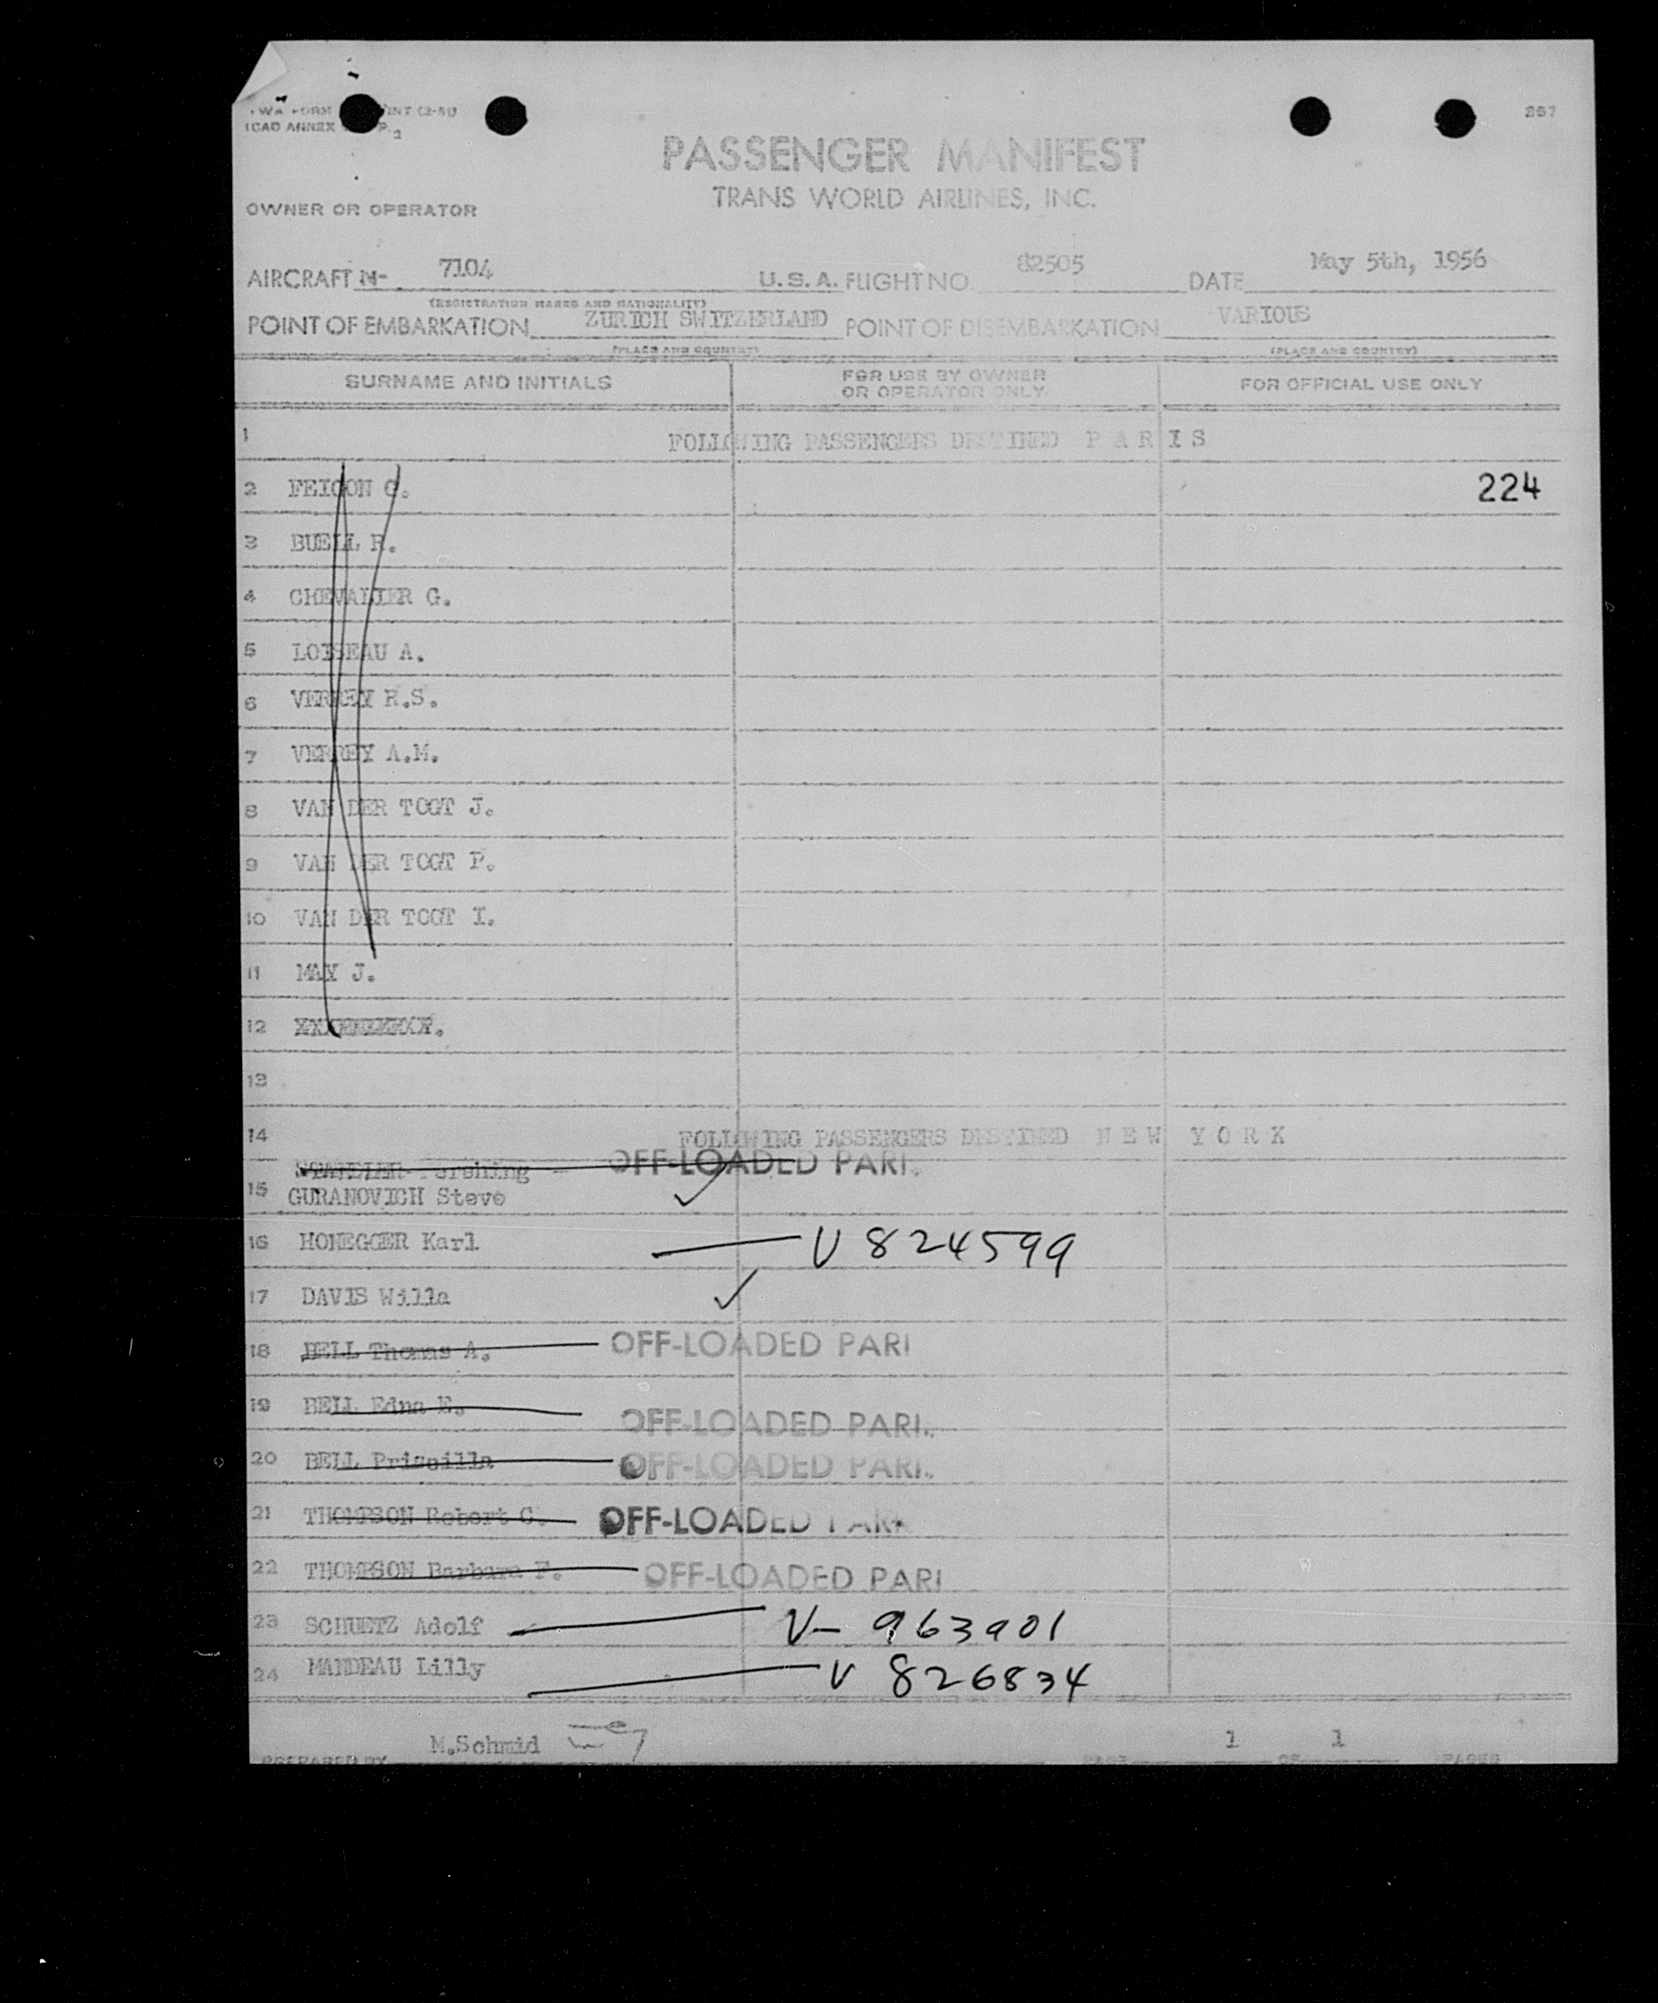 ICAO ANNEX
2
267
PASSENGER MANIFEST
TRANS WORLD AIRLINES, INC.
OWNER OR OPERATOR
AIRCRAFT N- 7104 U.S.A. FLIGHT NO 82505 DATE May 5th, 1956
(REGISTRATION MARKS AND NATIONALITY)
POINT OF EMBARKATION ZURICH SWITZERLAND POINT OF DISEMBARKATION VARIOUS
(PLACE AND COUNTRY) (PLACE AND COUNTRY)
SURNAME AND INITIALS FOR USE BY OWNER OR OPERATOR ONLY FOR OFFICIAL USE ONLY
1 FOLLOWING PASSENGERS DESTINED P A R I S
2 FEIGON C. 224
3 BUELL R.
4 CHEVALIER G.
5 LOISEAU A.
6 VERREY R.S.
7 VERREY A.M.
8 VAN DER TOGT J.
9 VAN DER TOGT P.
10 VAN DER TOGT I.
11 MAY J.
12
13
14 FOLLOWING PASSENGERS DESTINED N E W Y O R K
OFF-LOADED PARI.
15 GURANOVICH Steve ✓
16 HONEGGER Karl V 824599
17 DAVIS Willa ✓
18 BELL Thomas A. OFF-LOADED PARI
19 BELL Edna E. OFF-LOADED PARI.
20 BELL Priscilla OFF-LOADED PARI.
21 THOMPSON Robert C. OFF-LOADED PARI
22 THOMPSON Barbara F. OFF-LOADED PARI
23 SCHUETZ Adolf V- 963901
24 MANDEAU Lilly V 826834
PREPARED BY M.Schmid PAGE 1 OF 1 PAGES